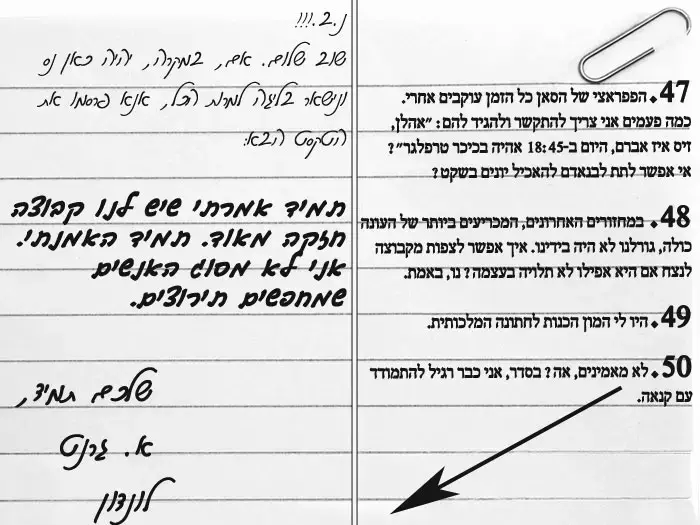 47. הפפראצי של הסאן כל הזמן עוקבים אחרי.
כמה פעמים אני צריך להתקשר ולהגיד להם: "אהלן,
דיס איז אברם, היום ב-18:45 אהיה בכיכר טרפלגר"?
אי אפשר לתת לבנאדם להאכיל יונים בשקט?
48. במחזורים האחרונים, המכריעים ביותר של העונה
כולה, גורלנו לא היה בידינו. איך אפשר לצפות מקבוצה
לנצח אם היא אפילו לא תלויה בעצמה? נו, באמת.
49. היו לי המון הכנות לחתונה המלכותית.
50. לא מאמינים, אה? בסדר, אני כבר רגיל להתמודד
עם קנאה.
נ.ב.!!!
שוב שלום. אם, במקרה, יהיה כאן נס
ונישאר בליגה למרות הכל, אנא פרסמו את
הטקסט הבא:
תמיד אמרתי שיש לנו קבוצה
חזקה מאוד. תמיד האמנתי.
אני לא מסוג האנשים
שמחפשים תירוצים.
שלכם תמיד,
א. גרנט
לונדון